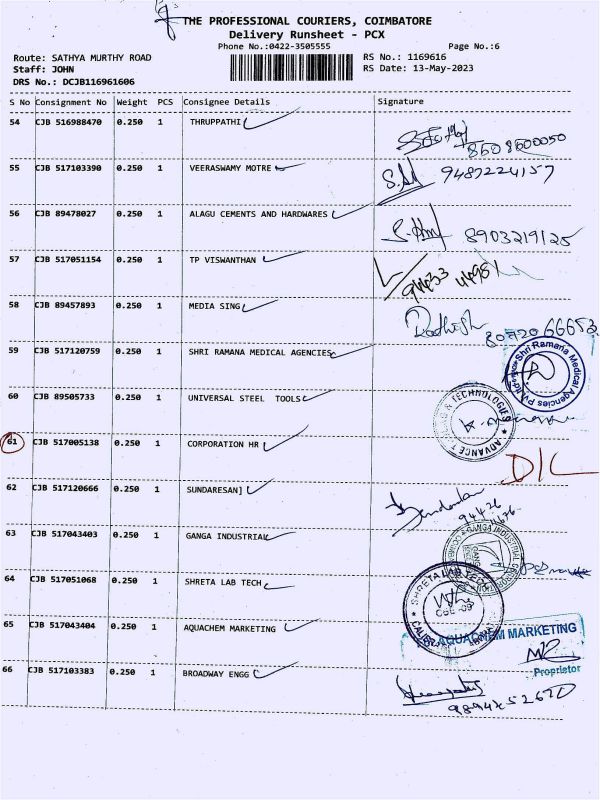 THE PROFESSIONAL COURIERS, COIMBATORE
Delivery Runsheet - PCX
Phone No.:0422-3505555 Page No.:6
Route: SATHYA MURTHY ROAD RS No.: 1169616
Staff: JOHN RS Date: 13-May-2023
DRS No.: DCJB116961606
S No Consignment No Weight PCS Consignee Details Signature
54 CJB 516988470 0.250 1 THRUPPATHI
8608600050
55 CJB 517103390 0.250 1 VEERASWAMY MOTRE
9487224157
56 CJB 89478027 0.250 1 ALAGU CEMENTS AND HARDWARES
8903219125
57 CJB 517051154 0.250 1 TP VISWANTHAN
58 CJB 89457893 0.250 1 MEDIA SING
80720 66653
59 CJB 517120759 0.250 1 SHRI RAMANA MEDICAL AGENCIES
Shri Ramana Medical Agencies Pvt Ltd
60 CJB 89505733 0.250 1 UNIVERSAL STEEL TOOLS
TECHNOLOGIES ADVANCE
61 CJB 517005138 0.250 1 CORPORATION HR
D/L
62 CJB 517120666 0.250 1 SUNDARESAN]
63 CJB 517043403 0.250 1 GANGA INDUSTRIAL
64 CJB 517051068 0.250 1 SHRETA LAB TECH
SHRETA LAB TECH
65 CJB 517043404 0.250 1 AQUACHEM MARKETING
AQUACHEM MARKETING
Proprietor
66 CJB 517103383 0.250 1 BROADWAY ENGG